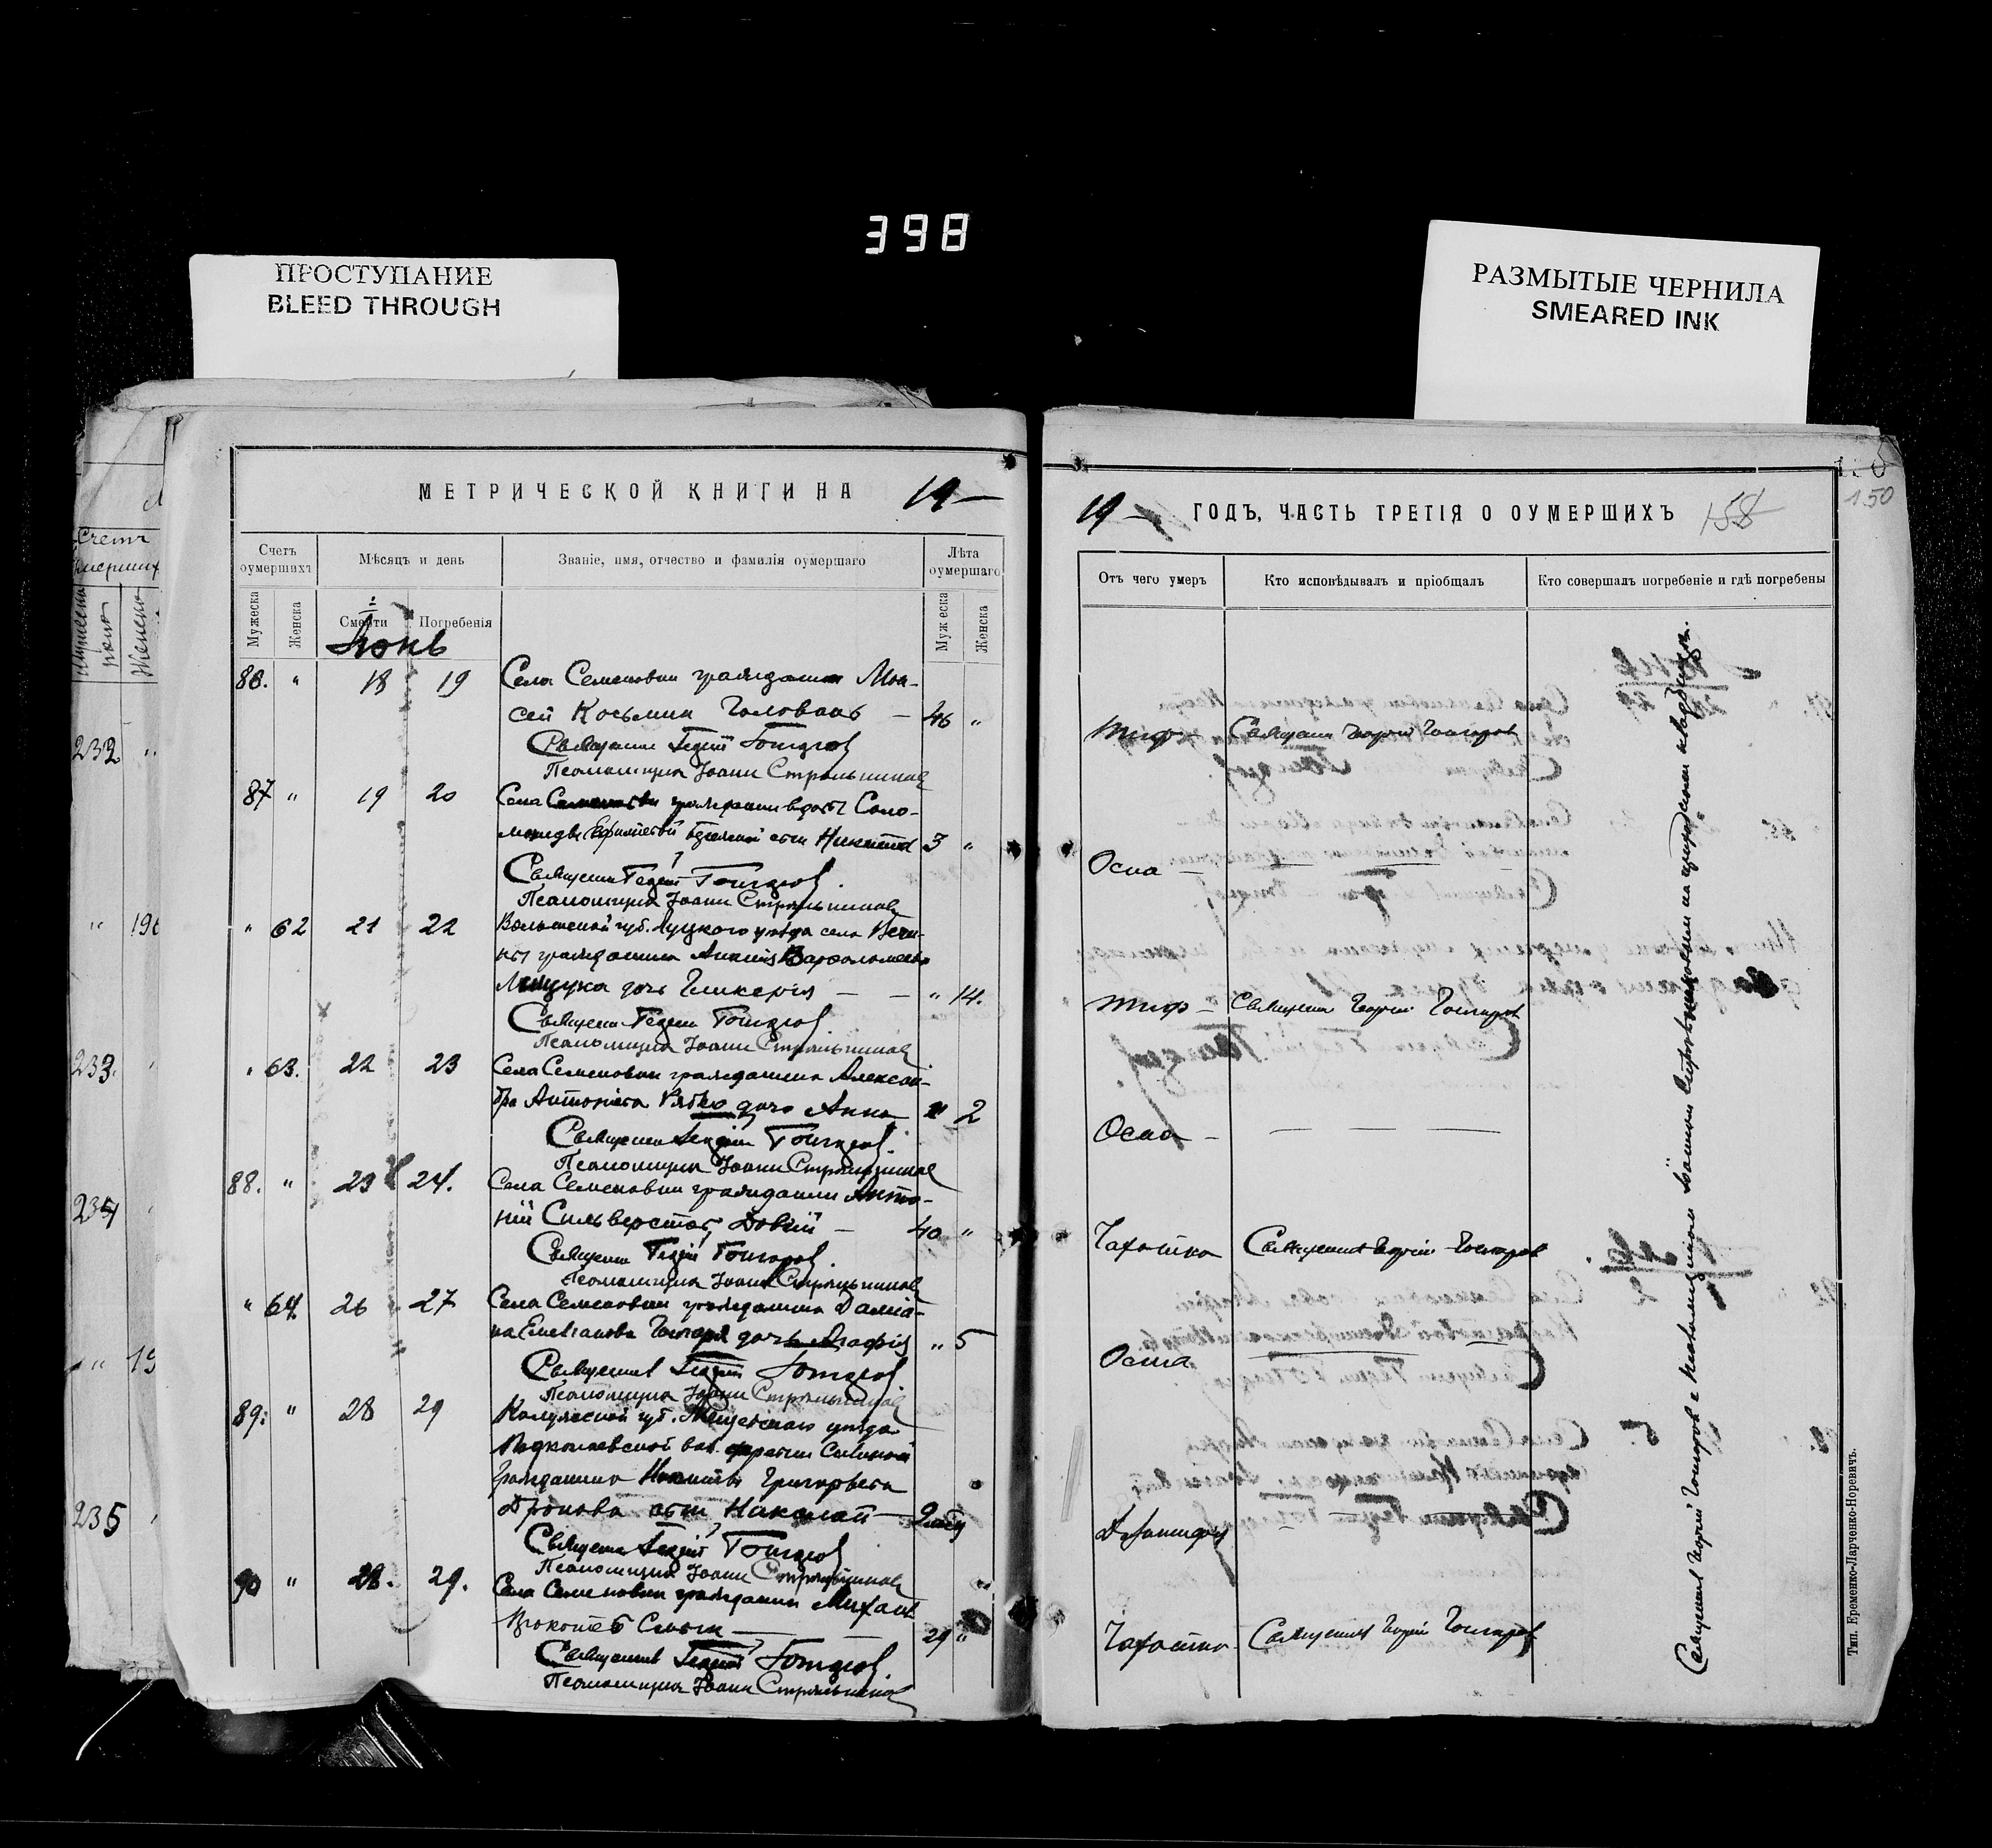 398
ПРОСТУПАНИЕ
BLEED THROUGH
РАЗМЫТЫЕ ЧЕРНИЛА
SMEARED INK
МЕТРИЧЕСКОЙ КНИГИ НА 19—
Счетъ оумершихъ
Мѣсяцъ и день
Званіе, имя, отчество и фамилія оумершаго
Лѣта оумершаго
Мужеска
Женска
Смерти
Погребенія
Мужеска
Женска
Іюнь
86. " 18 19 Села Семеновки гражданин Мои-
сей Косьмин Головань — 46 "
Священник Георгій Гончаров
Псаломщик Іоанн Стрельников
87 " 19 20 Села Семеновки гражданки вдовы Соло-
сын Никита 3 "
Священник Георгій Гончаров
Псаломщик Іоанн Стрельников
" 62 21 22 Волынской губ. Луцкого уѣзда села
гражданина Варфоломеева
дочь Гликерія — — " 14.
Священник Георгій Гончаров
Псаломщик Іоанн Стрельников
" 63. 22 23 Села Семеновки гражданина Алексан-
дра Антоніева дочь Анна " 2
Священник Георгій Гончаров
Псаломщик Іоанн Стрельников
88. " 23 24. Села Семеновки гражданин Анто-
ній Сильверстов — 40 "
Священник Георгій Гончаров
Псаломщик Іоанн Стрельников
" 64 26 27 Села Семеновки гражданина Даміа-
на Емельянова Гончара дочь Агафія " 5
Священник Георгій Гончаров
Псаломщик Іоанн Стрельников
89. " 28 29 Калужской губ. уѣзда
вол. деревни
гражданина Никиты Григорьева
Дронова сын Николай —
Священник Георгій Гончаров
Псаломщик Іоанн Стрельников
90 " 28. 29. Села Семеновки гражданин Михаил
— 29 "
Священник Георгій Гончаров
Псаломщик Іоанн Стрельников
19— ГОДЪ, ЧАСТЬ ТРЕТІЯ О ОУМЕРШИХЪ 158
150
Отъ чего умеръ
Кто исповѣдывалъ и пріобщалъ
Кто совершалъ погребеніе и гдѣ погребены
Тиф — Священник Георгій Гончаров
Оспа — — —
Тиф — Священник Георгій Гончаров
Оспа — — — —
Чахотка Священник Георгій Гончаров
Оспа — —
Чахотка Священник Георгій Гончаров
Священник Георгій Гончаров с псаломщиком Іоанном Стрельниковым на приходском кладбищѣ.
Тип. Еременко-Ларченко-Норевичъ.
232
196
233.
234
19
235